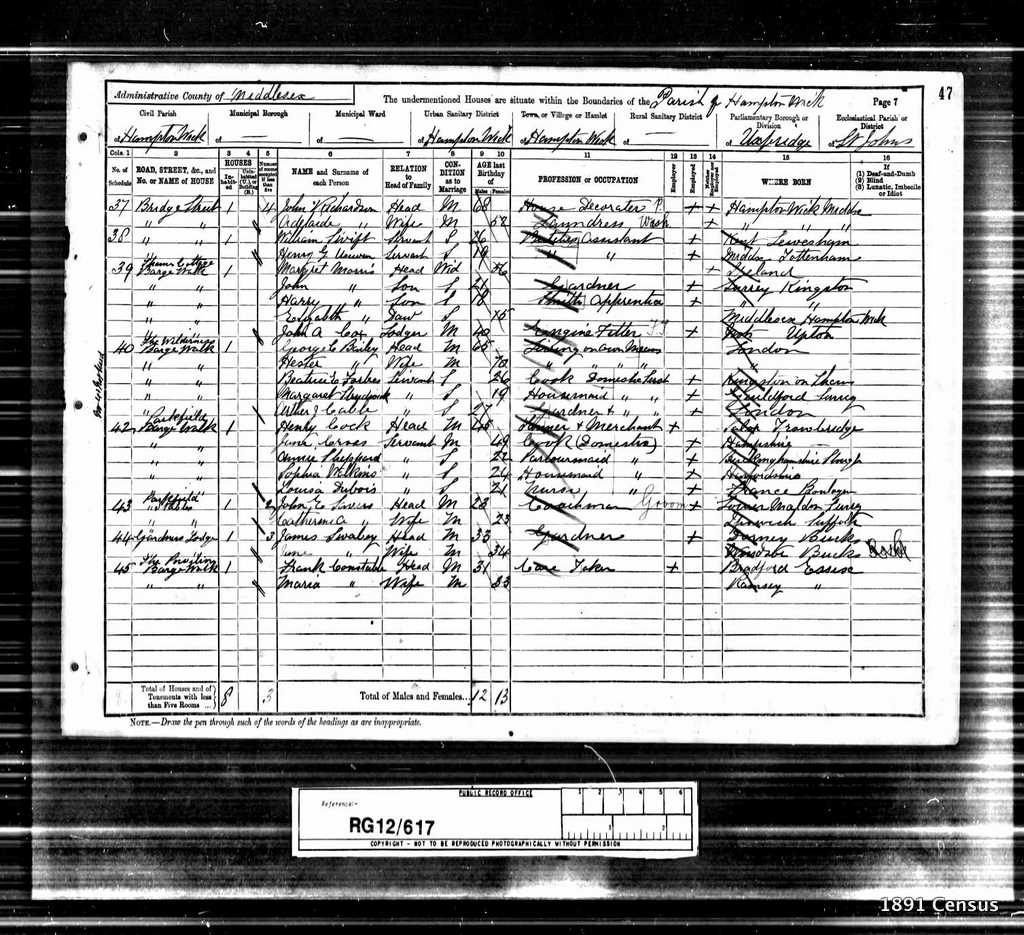 47
Administrative County of Middlesex
The undermentioned Houses are situate within the Boundaries of the Parish of Hampton Wick
Page 7
Civil Parish
Municipal Borough
Municipal Ward
Urban Sanitary District
Town, or Village or Hamlet
Rural Sanitary District
Parliamentary Borough or Division
Ecclesiastical Parish or District
of Hampton Wick
of
of
of Hampton Wick
of Hampton Wick
of
of Uxbridge
of St Johns
Cols. 1 2 3 4 5 6 7 8 9 10 11 12 13 14 15 16
No. of Schedule
ROAD, STREET, &c., and No. or NAME of HOUSE
HOUSES
Inhabited
Uninhabited (U.), or Building (B.)
NAME and Surname of each Person
RELATION to Head of Family
CONDITION as to Marriage
AGE last Birthday of
Males Females
PROFESSION or OCCUPATION
Employer
Employed
WHERE BORN
(1) Deaf-and-Dumb
(2) Blind
(3) Lunatic, Imbecile or Idiot
37 Bridge Street 1 4 John Richardson Head M 68 House Decorater + + Hampton Wick Middx
" " Adelaide " Wife M 52 Laundress Wash + " " "
38 " " 1 William Swift Servant S 26 Assistant + Kent Lewesham
" " Henry G Servant S 19 " " + Middx Tottenham
39 Thames Cottage Barge Walk 1 Margret Morris Head Wid + Ireland
" " John " Son S 21 Gardner + Surrey Kingston
" " Harry " Son S 18 Smiths Apprentice + " "
" " Elizabeth " Daur S 15 Middlesex Hampton Wick
" " John A Cox Lodger M 40 Engine Fitter + Upton
40 The Wilderness Barge Walk 1 George C Head M 65 Living on Own Means London
" " Hester " Wife M 70 " " " " "
" " Beatrice E Forbes Servant S 26 Cook Domestic Servt + Kingston on Thames
" " Margaret " S 19 Housemaid " " + Guildford Surrey
" " Arther J Cable " S 27 Gardner " " + London
42 Parkfield Barge Walk 1 Henry Cock Head M 45 Merchant +
" Jane Cross Servant M 49 Cook (Domestic) + Hampshire
" " Annie Sheppard " S 22 Parlourmaid " + Buckinghamshire Slough
" " Sophia Wilkins " S 24 Housemaid " +
" " Louisa Dubois " S 21 Nurse " + France Boulogn
43 Parkfield Stables 1 2 John E Head M 23 Coachman Groom + Maldon Surrey
" " Catherine A " Wife M 23 Ipswich Suffolk
44 Gardners Lodge 1 3 James Swabey Head M 33 Gardner + Dorney Bucks
" " Jane " Wife M 34 Bucks
45 The Barge Walk 1 Frank Constable Head M 31 Care Taker + Bradford Essex
" Maria " Wife M 23 Ramsey "
Total of Houses and of Tenements with less than Five Rooms 8 3
Total of Males and Females... 12 13
NOTE.—Draw the pen through such of the words of the headings as are inappropriate.
PUBLIC RECORD OFFICE
Reference:-
RG12/617
1 2 3 4 5 6
1 2
COPYRIGHT - NOT TO BE REPRODUCED PHOTOGRAPHICALLY WITHOUT PERMISSION
1891 Census